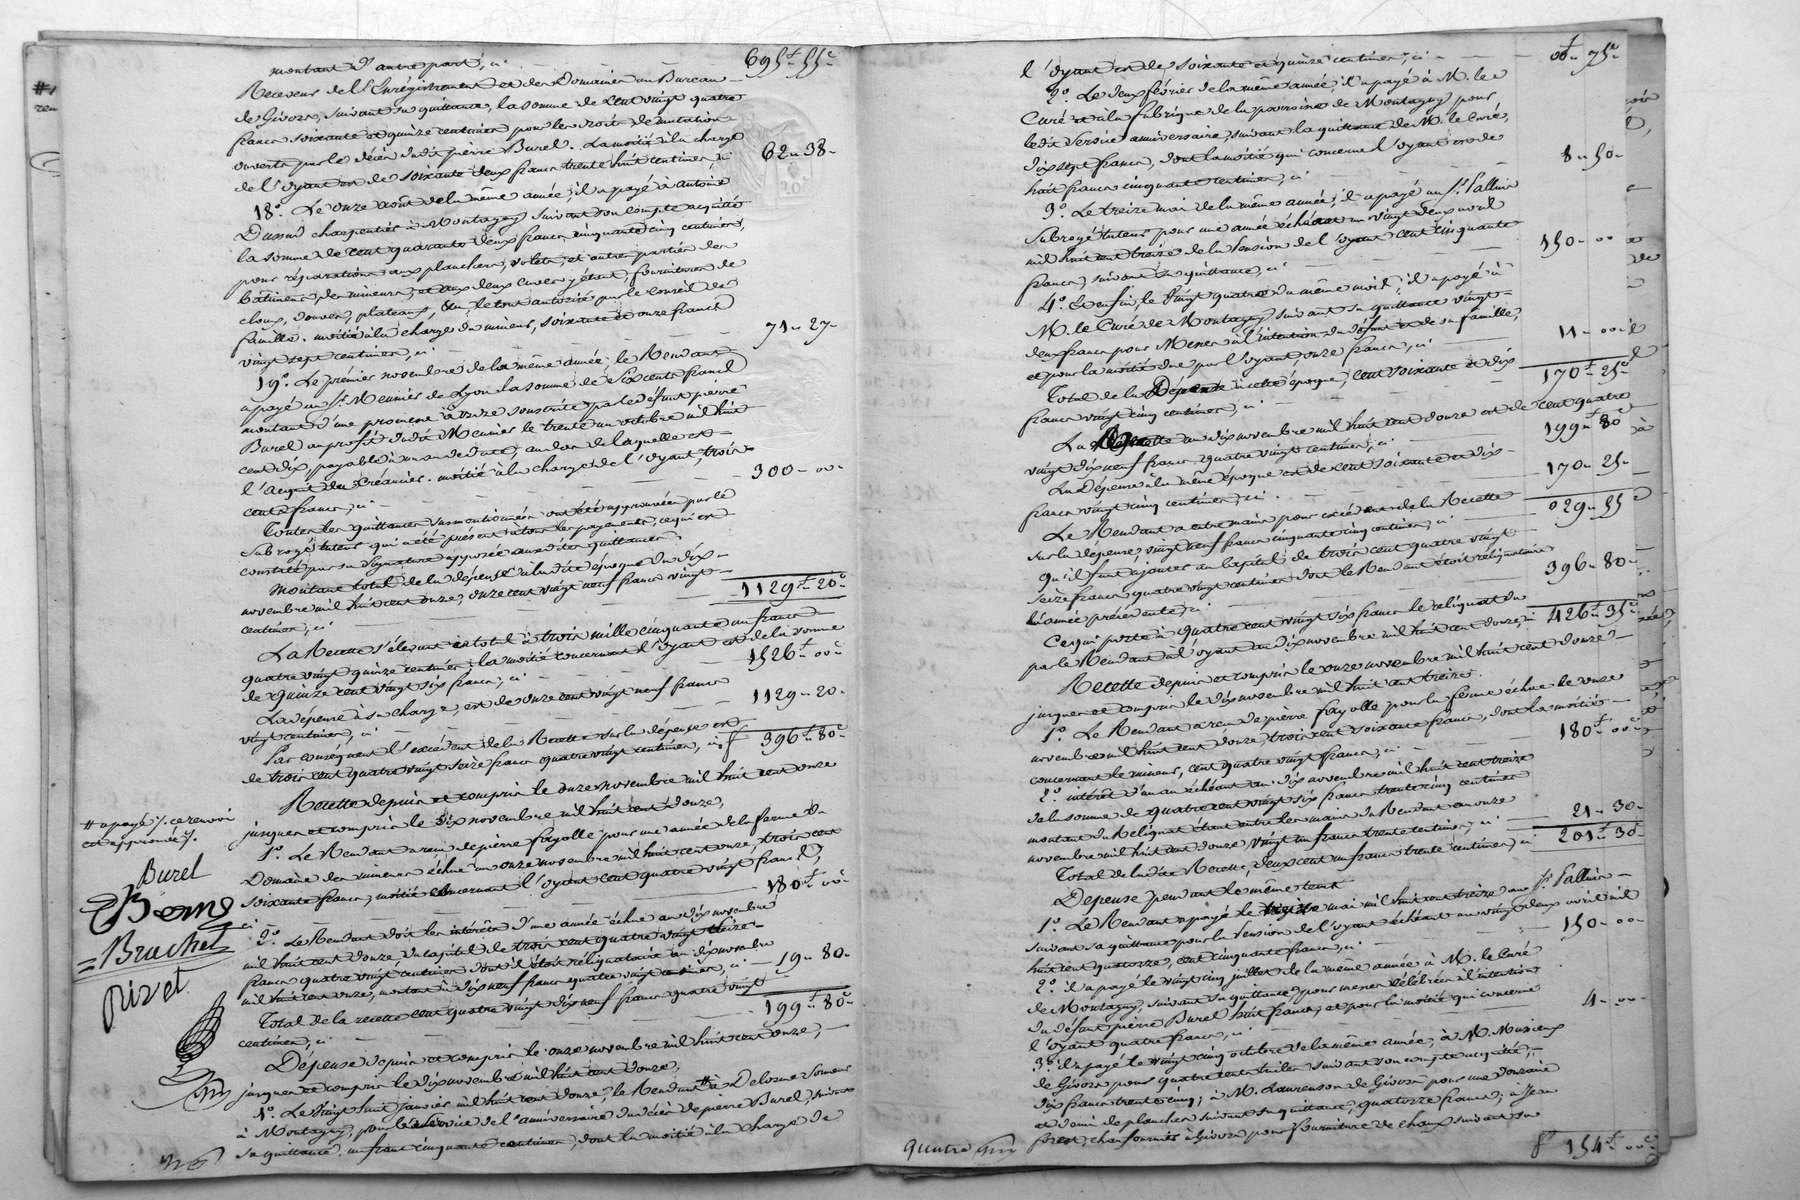 montant d'autre part, ci 695f 55c
Receveur de l'Enrégistrement et des Domaines au Bureau
de Givors, suivant sa quittance, la somme de Cent vingt quatre
francs soixante et quinze centimes pour les droits de mutation
ouverts par le décès dudit pierre Burel. La moitié à la charge
de l'oyant est de soixante deux francs trente huit centimes, ci 62 38
18o. Le onze août de la même année, il a payé à antoine
charpentier à Montagny suivant son compte acquitté
la somme de cent quarante deux francs cinquante cinq centimes,
pour réparations aux planchers, volets, et autres parties des
bâtimens des mineurs, et aux deux cuves y étant, fournitures de
cloux, douves, plateaux, &a, le tout autorisé par le conseil de
famille. moitié à la charge du mineur, soixante et onze francs
vingt sept centimes, ci 71 27
19o. Le prémier novembre de la même année, le Rendant
a payé au Sr. Meunier de Lyon la somme de Six cents francs
montant d'une promesse à ordre souscrite par le défunt pierre
Burel au profit dudit Meunier le trente un octobre mil huit
cent dix, payable à un an de date, au dos de laquelle est
l'acquit du Créancier. moitié à la charge de l'oyant, trois
cents francs, ci 300 00
Toutes les quittances susmentionnées ont été approuvées par le
subrogé tuteur qui a été présent à tous les payements, ce qui est
constaté par sa signature apposée auxdites quittances.
Montant total de la dépense à ladite époque du dix
novembre mil huit cent onze, onze cent vingt neuf francs vingt
centimes, ci 1129f 20c
La Recette s'élevant en total à trois mille cinquante un francs
quatre vingt quinze centimes, la moitié concernant l'oyant est de la somme
de quinze cent vingt six francs, ci 1526f 00c
La dépense à sa charge, est de onze cent vingt neuf francs
vingt centimes, ci 1129 20
Par conséquent l'excédent de la Recette sur la dépense est
de trois cent quatre vingt seize francs quatre vingt centimes, ci 396f 80c
Recette depuis et compris le onze novembre mil huit cent onze
jusques et compris le dix novembre mil huit cent douze.
1o. Le Rendant a reçu de pierre fayolle pour une année de la ferme du
Domaine des mineurs échue au onze novembre mil huit cent onze, trois cent
soixante francs, moitié concernant l'oyant cent quatre vingt francs,
ci 180f 00
2o. Le Rendant doit les intérêts d'une année échue au dix novembre
mil huit cent douze du capital de trois cent quatre vingt seize
francs quatre vingt centimes dont il étoit réliquataire au dix novembre
mil huit cent onze, montant à dix neuf francs quatre vingt centimes, ci 19 80
Total de la recette cent quatre vingt dix neuf francs quatre vingt
centimes, ci 199f 80c
Dépense depuis et compris le onze novembre mil huit cent onze,
jusques et compris le dix novembre mil huit cent douze.
1o. Le Vingt huit janvier mil huit cent douze, le Rendant # à
à Montagny, pour le service de l'anniversaire du décès de pierre Burel, suivant
sa quittance, un franc cinquante centimes, dont la moitié à la charge de
# a payé /. ce renvoi
est approuvé /.
Burel
Brachet
Rivet
l'oyant est de soixante et quinze centimes, ci 00f 75c
2o. Le deux février de la même année, il a payé à M. le
Curé et à la fabrique de la paroisse de Montagny pour
ledit service anniversaire, suivant la quittance de M. le Curé,
dix sept francs, dont la moitié qui concerne l'oyant est de
huit francs cinquante centimes, ci 8 50
3o. Le treize mai de la même année, il a payé au Sr. Pallin
subrogé tuteur pour une année échéant au vingt deux avril
mil huit cent treize de la Pension de l'oyant cent cinquante
francs, suivant sa quittance, ci 150 00
4o. Et enfin, le Vingt quatre du même mois, il a payé à
M. le Curé de Montagny suivant sa quittance vingt
deux francs pour Messes à l'intention du défunt et de sa famille,
et pour la moitié due par l'oyant, onze francs, ci 11 00
Total de la Dépense à cette époque, cent soixante et dix
francs vingt cinq centimes, ci 170f 25c
La Recette au dix novembre mil huit cent douze est de cent quatre
vingt dix neuf francs quatre vingt centimes, ci 199f 80c
La Dépense à la même époque est de cent soixante et dix
francs vingt cinq centimes, ci 170 25
Le Rendant a entre mains pour excédent de la Recette
sur la dépense, vingt neuf francs cinquante cinq centimes, ci 029 55
Qu'il faut ajouter au capital de trois cent quatre vingt
seize francs quatre vingt centimes dont le Rendant étoit réliquataire
l'année précédente, ci 396 80
Ce qui porte à quatre cent vingt six francs le réliquat du
par le Rendant à l'oyant au dix novembre mil huit cent douze, ci 426f 35c
Recette depuis et compris le onze novembre mil huit cent douze
jusques et compris le dix novembre mil huit cent treize.
1o. Le Rendant a reçu de pierre fayolle pour la ferme échue le onze
novembre mil huit cent douze, trois cent soixante francs, dont la moitié
concernant le mineur, cent quatre vingt francs, ci 180f 00c
2o. intérêt d'un an échéant au dix novembre mil huit cent treize
de la somme de quatre cent vingt six francs trente cinq centimes
montant du Réliquat étant entre les mains du Rendant au onze
novembre mil huit cent douze, vingt un francs trente centimes, ci 21 30
Total de ladite Recette, deux cent un francs trente centimes, ci 201f 30c
Dépense pendant le même tems
1o. Le Rendant a payé le treize mai mil huit cent treize au Sr. Pallin
suivant sa quittance pour la Pension de l'oyant échéant au vingt deux avril mil
huit cent quatorze, cent cinquante francs, ci 150 00
2o. il a payé le vingt cinq juillet de la même année à M. le Curé
de Montagny, suivant sa quittance, pour messes célébrées à l'intention
du défunt pierre Burel huit francs, et pour la moitié qui concerne
l'oyant quatre francs, ci 4 00
3o. il a payé le vingt cinq octobre de la même année, à M. Musieux
de Givors pour quatre cent tuiles suivant son compte acquitté,
dix francs trente cinq; à M. Laurenson de Givors pour une douzaine
et demi de planches suivant sa quittance, quatorze francs; à Jean
forest, chaufournier à Givors pour fourniture de chaux suivant sa
154f 00c
quatre